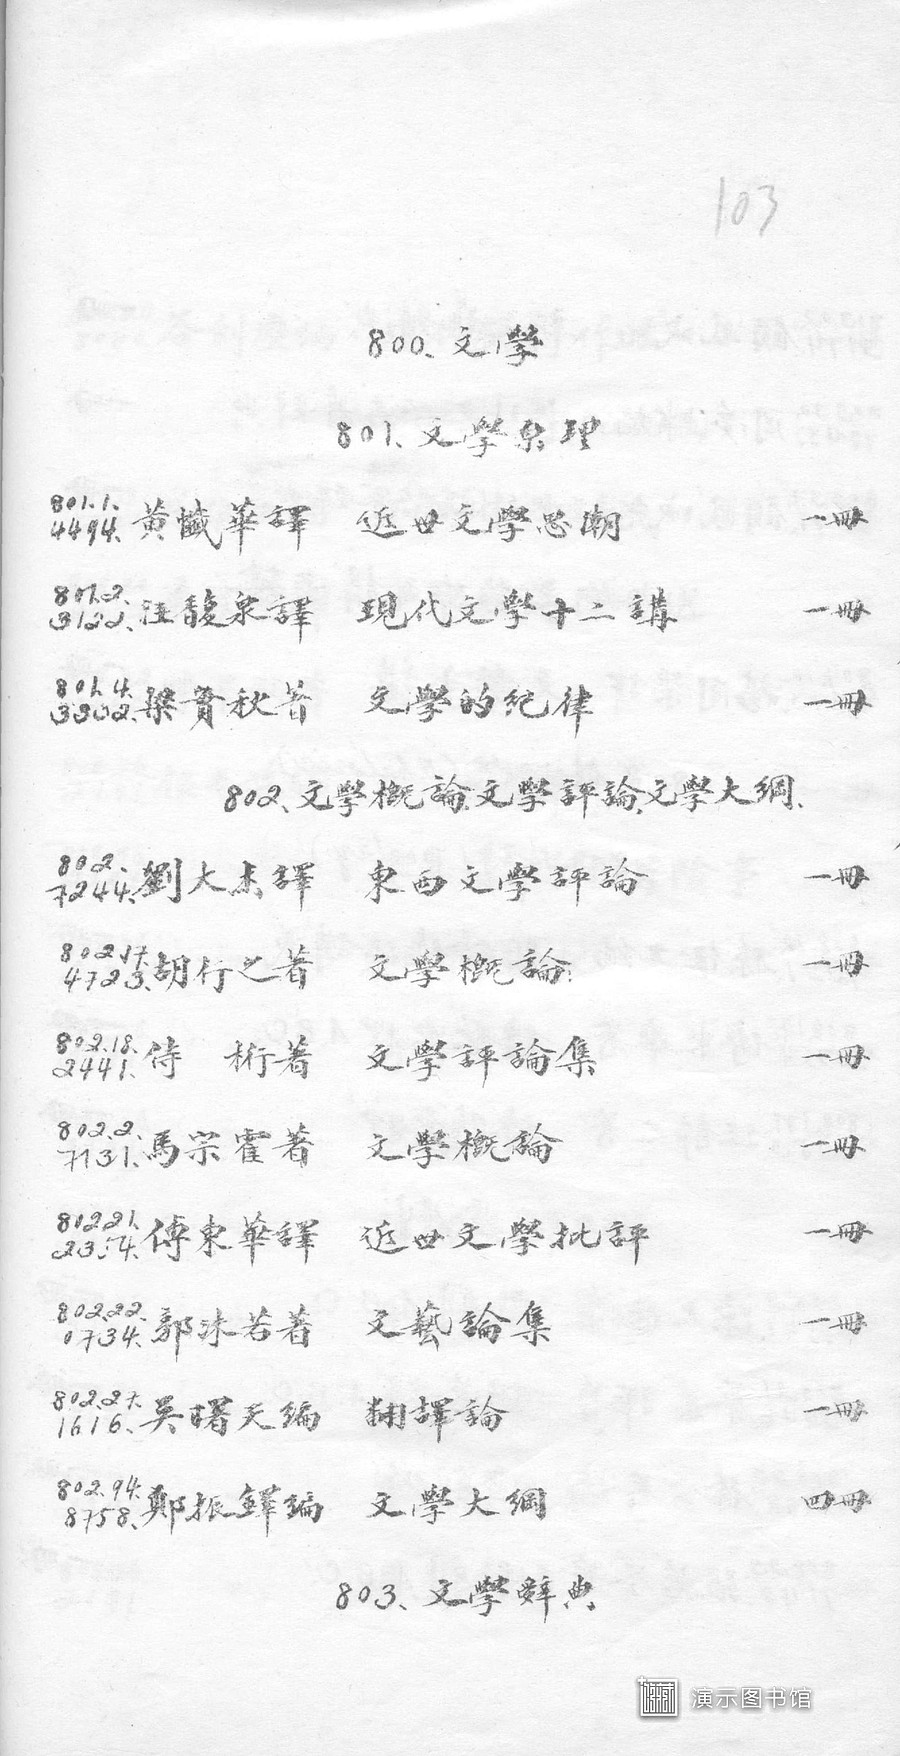 103
800、文學
801、文學原理
801.1.
4494. 黃懺華譯 近世文學思潮 一冊
801.2.
3122. 汪馥泉譯 現代文學十二講 一冊
801.4.
3302. 梁實秋著 文學的紀律 一冊
802、文學概論、文學評論、文學大綱、
802.
7244. 劉大杰譯 東西文學評論 一冊
802.17.
4723. 胡行之著 文學概論 一冊
802.18.
2441. 侍 桁著 文學評論集 一冊
802.2.
7131. 馬宗霍著 文學概論 一冊
802.21.
235.4. 傅東華譯 近世文學批評 一冊
802.22.
0734. 郭沫若著 文藝論集 一冊
802.27.
1616. 吳曙天編 翻譯論 一冊
802.94.
8758. 鄭振鐸編 文學大綱 四冊
803、文學辭典
演示图书馆